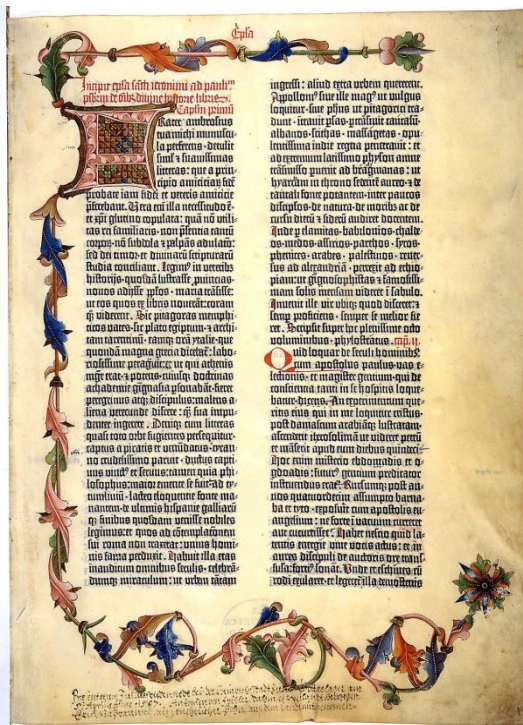 Epſa
Incipit epſa ſācti ieronimi ad pauli
pſbitm de oibz divine hiſtorie libris
Capſm primū
Frater ambroſius
tua michi munuſcu-
la preferens · detulit
ſimul et ſuauiſſimas
litteras: que a prin-
cipio amiciciarū fidē
probate iam fidei et veteris amicicie
pferebant. Vera eni illa neceſſitudo ē·
et xpi glutino copulata: quā nō utili-
tas rei familiaris· non pſentia tantū
corporū· nō ſubdola et palpās adulatō:
ſed dei timor· et diuinarū ſcripturarū
ſtudia conciliant. Legimꝰ in veteribꝫ
hiſtorijs· quoſdā luſtraſſe puincias·
nouos adiſſe pplos· maria trāſiſſe:
ut eos quos ex libris nouerāt: coram
qꝫ viderent. Sic pitagoras memphi-
ticos vates: ſic plato egiptum· et archi-
tam tarentinū· eamqꝫ orā ytalie· que
quondā magna grecia dicebat᷑: labo-
rioſiſſime peragrauit: ut qui athenis
mgr̄ erat et potens· cuiuſqꝫ doctrinas
achademie gignaſia pſonabāt· fieret
peregrinus atqꝫ diſcipulus: malens a-
liena verecunde diſcere: qꝫ ſua impu-
denter ingerere. Deniqꝫ cum litteras
quaſi toto orbe fugientes perſequitur·
captus a piratis et venūdatus· tyran-
no crudeliſſimo paruit · ductus capti-
uus vinctꝰ et ſeruus: tamen quia phi-
loſophus· maior emente ſe fuit · ad ty-
tumliuiū · lacteo eloquentie fonte ma-
nantem· de ultimis hiſpanie galliarūqꝫ
finibus quoſdam veniſſe nobiles
legimus: et quos ad cōtemplationē
ſui roma non traxerat: unius homi-
nis fama perduxit . Habuit illa etas
inauditum omnibus ſeculis · celebrā-
dumqꝫ miraculum: ut urbem tātam
ingreſſi : aliud extra urbem quererent.
Apolloniꝰ ſiue ille magꝰ ut vulgus
loquitur· ſiue phus ut pitagorici tra-
dunt · ītrauit pſas· ptrāſiuit caucaſū·
albanos· ſcithas · maſſagetas· opu-
lentiſſima indie regna penetrauit : et
ad extremum latiſſimo phyſon amne
tranſmiſſo puenit ad bragmanas : ut
hyarcam in throno ſedentē aureo · et de
tantali fonte potantem· inter paucos
diſcipulos· de natura· de moribus ac de
curſu dierū et ſiderū audiret docentem.
Inde p elamitas· babilonios· chalde-
os· medos· aſſirios· parthos · ſyros·
phenices· arabes · paleſtinos · reuer-
ſus ad alexandriā · perrexit ad ethio-
piam: ut gignoſophiſtas et famoſiſſi-
mam ſolis menſam videret ī ſabulo.
Inuenit ille vir ubiqꝫ quod diſceret: et
ſemp proficiens· ſemper ſe melior fie-
ret. Scripſit ſuper hoc pleniſſime octo
voluminibus · phyloſtratus. Cap. II.
Quid loquar de ſeculi hominibꝰ:
cum apoſtolus paulus· vas e-
lectionis· et magiſter gentium· qui de
conſcientia tanti in ſe hoſpitis loque-
batur· dicens. An experimentum que-
ritis eius qui in me loquitur criſtus·
poſt damaſcum arabiāqꝫ luſtratam·
aſcenderit iheroſolimā ut videret petrū
et māſerit apud eum diebus quindeci·
Hoc enim miſterio ebdomadis et o-
gdoadis: futurꝰ gentium predicator
inſtruendus erat. Rurſumqꝫ poſt an-
nos quatuordecim aſſumpto barna-
ba et tyto · expoſuit cum apoſtolis eu-
angelium : ne forte ī vacuum curreret
aut cucurriſſet. Habet neſcio quid la-
tentis energie vive vocis actus : et in
aures diſcipuli de auctoris ore tranſ-
fuſa: fortiꝰ ſonat. Unde et eſchines cū
rodi exularet· et legeret᷑ illa demoſtenis